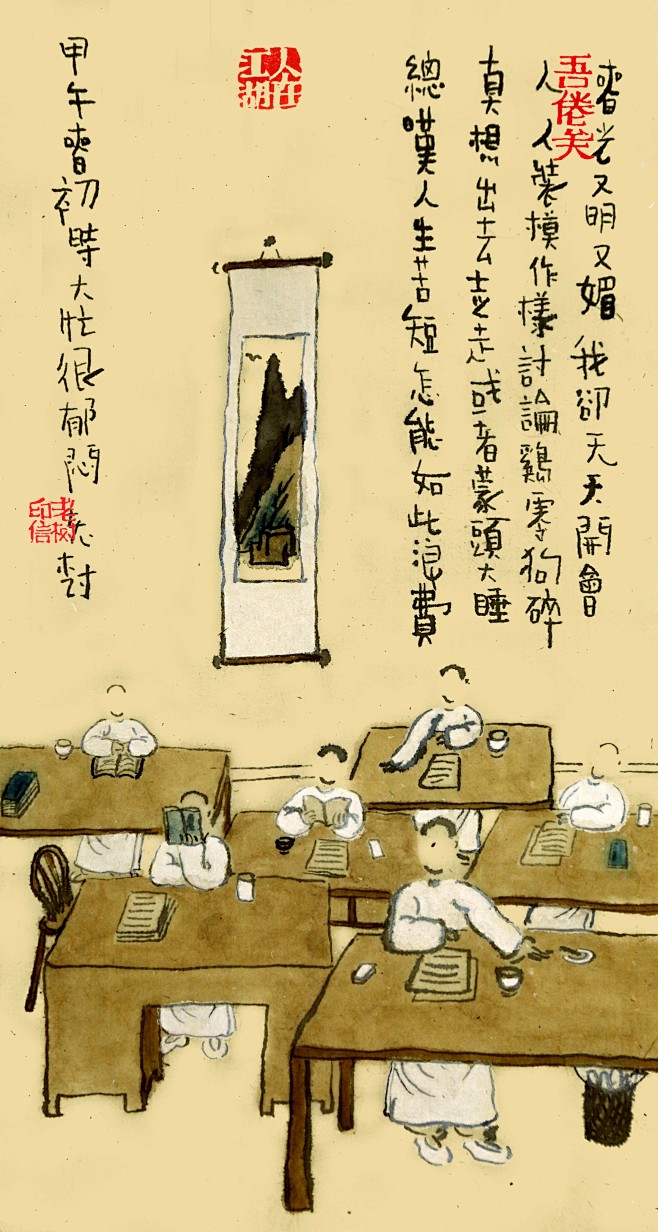 春光又明又媚 我卻天天開會
人人裝模作樣 討論鷄零狗碎
真想出去走走 或者蒙頭大睡
總嘆人生苦短 怎能如此浪費
吾倦矣
人在江湖
甲午春初時大忙很郁悶 老树
老树印信